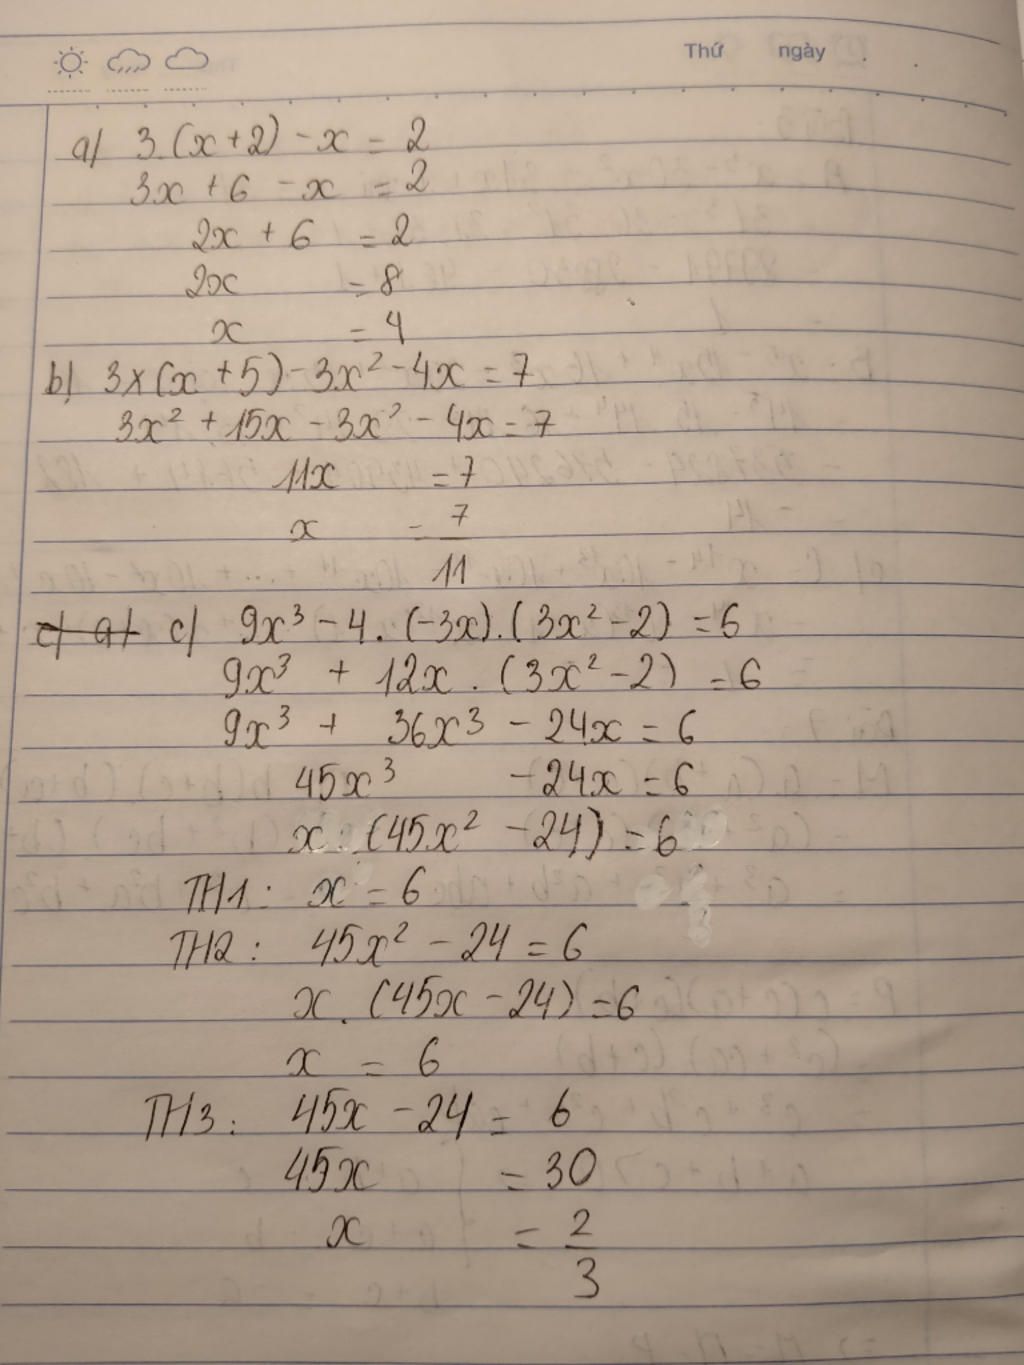 Thứ ngày
a) 3.(x+2) - x = 2
3x + 6 - x = 2
2x + 6 = 2
2x = 8
x = 4
b) 3x(x+5) - 3x² - 4x = 7
3x² + 15x - 3x² - 4x = 7
11x = 7
x = 7/11
c) a) c) 9x³ - 4.(-3x).(3x² - 2) = 6
9x³ + 12x.(3x² - 2) = 6
9x³ + 36x³ - 24x = 6
45x³ - 24x = 6
x.(45x² - 24) = 6
TH1: x = 6
TH2: 45x² - 24 = 6
x.(45x - 24) = 6
x = 6
TH3: 45x - 24 = 6
45x = 30
x = 2/3